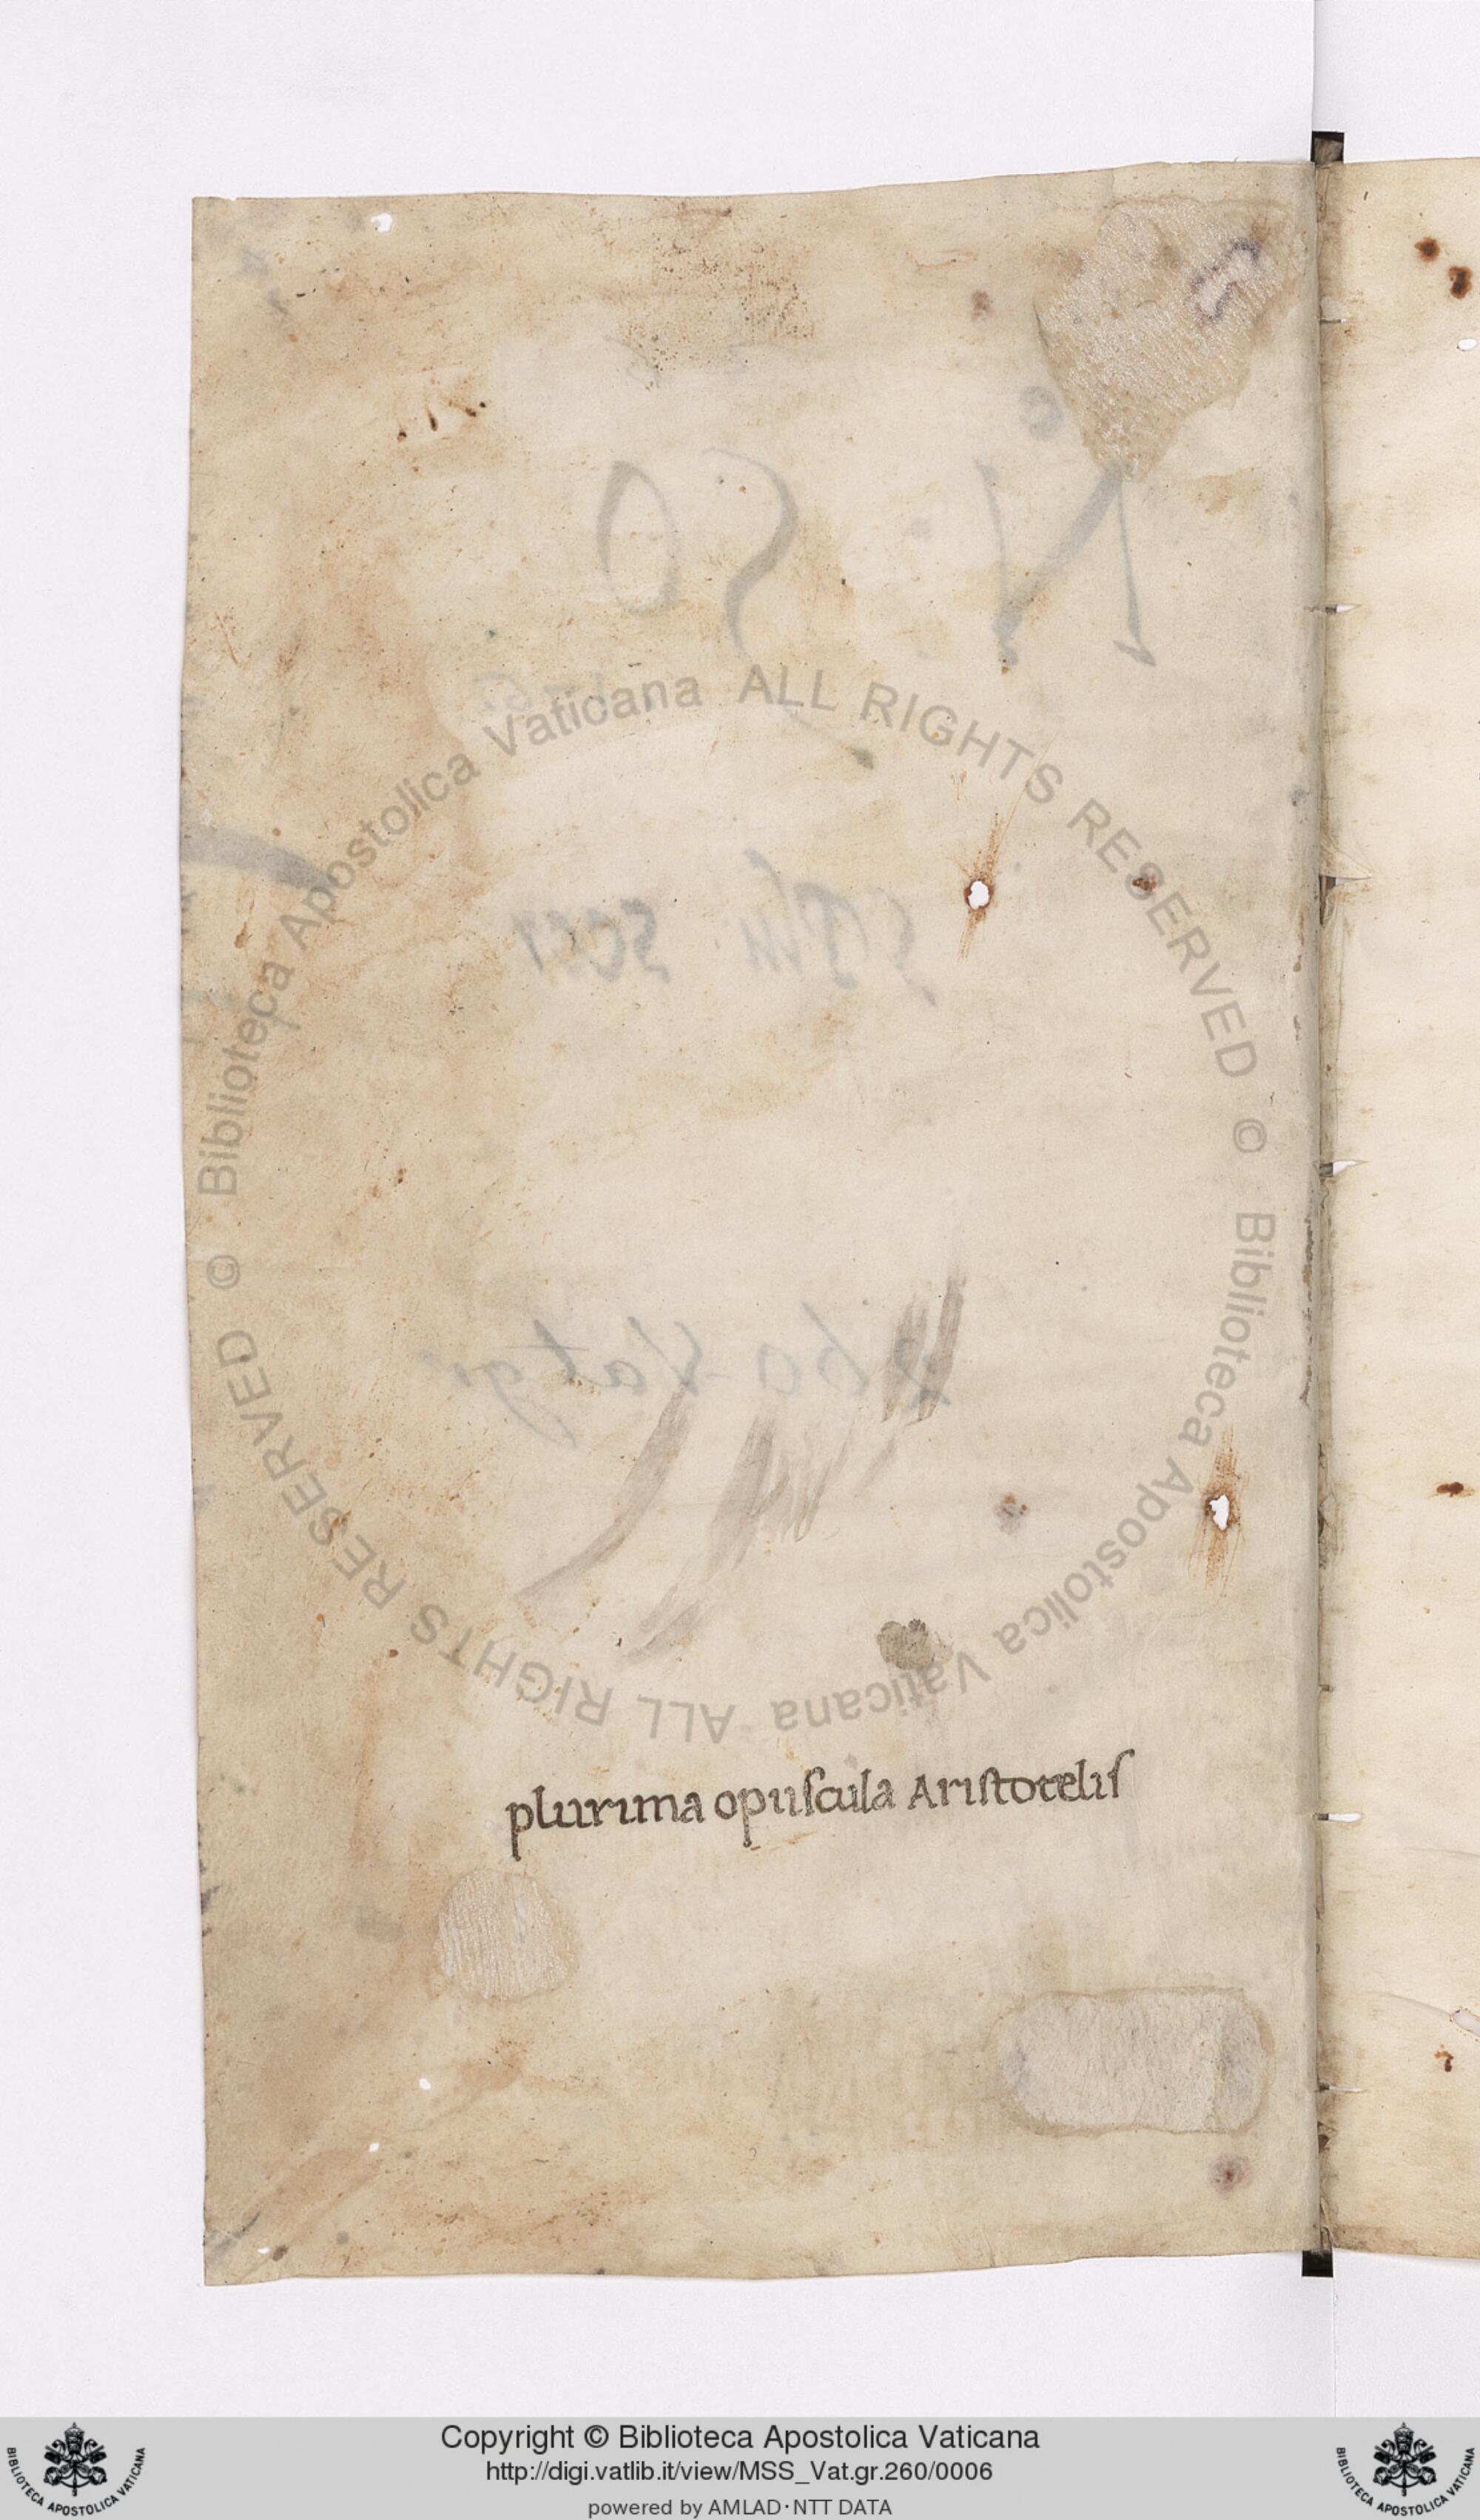 N 50
260 Vat gr
plurima opuscula Aristotelis
© Biblioteca Apostolica Vaticana ALL RIGHTS RESERVED © Biblioteca Apostolica Vaticana ALL RIGHTS RESERVED
Copyright © Biblioteca Apostolica Vaticana
http://digi.vatlib.it/view/MSS_Vat.gr.260/0006
powered by AMLAD·NTT DATA
BIBLIOTECA APOSTOLICA VATICANA
BIBLIOTECA APOSTOLICA VATICANA